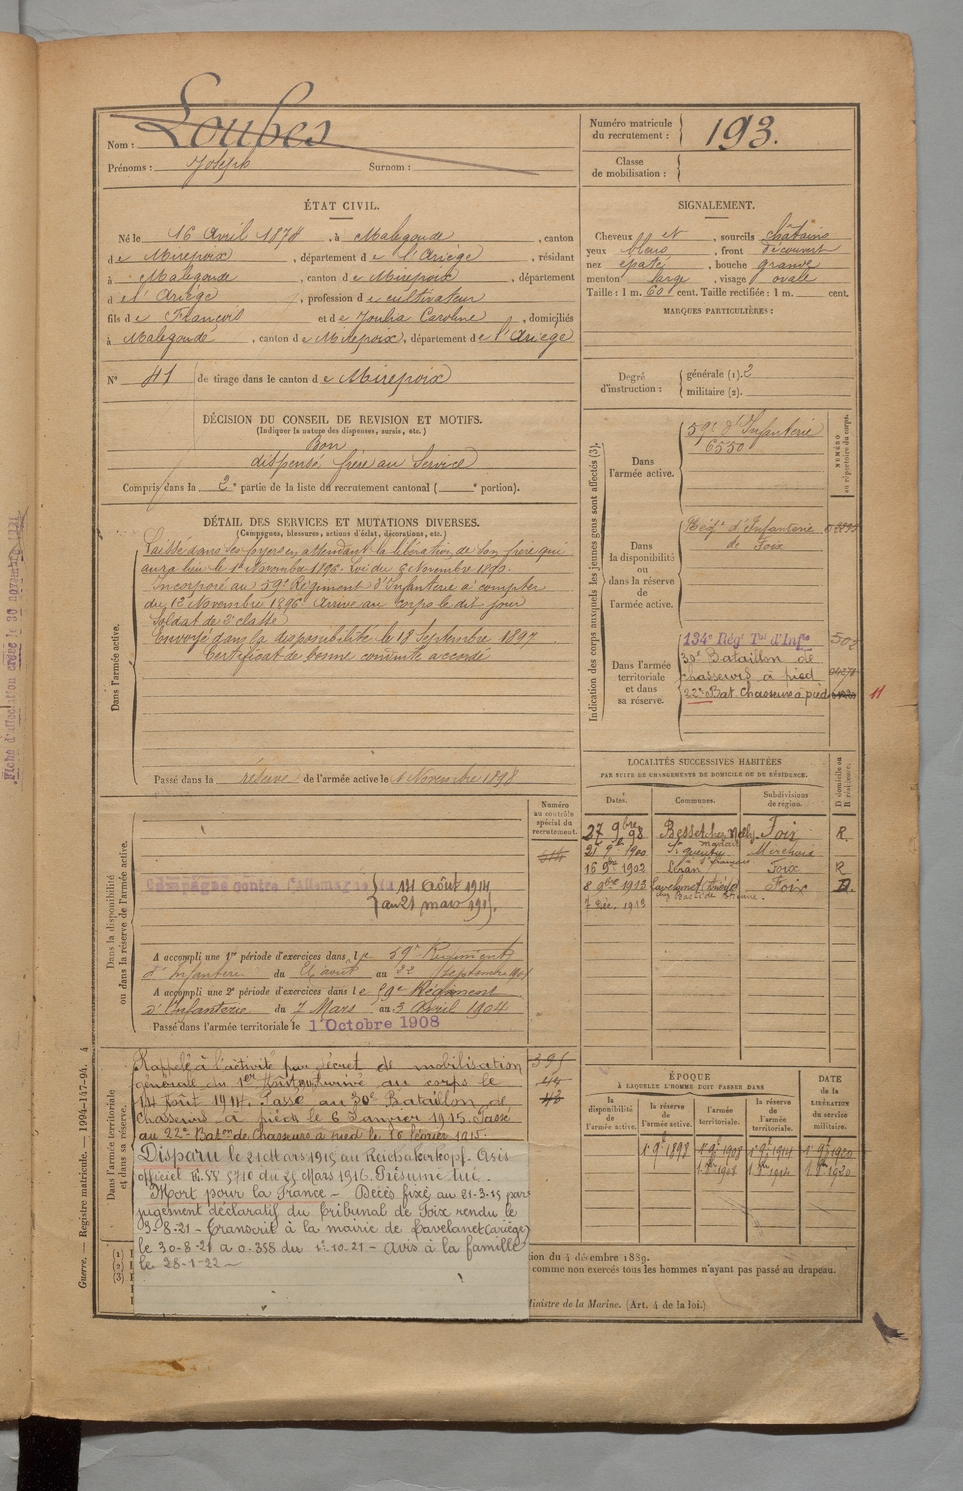 Nom : Loubes
Prénoms : Joseph Surnom :
Numéro matricule du recrutement : 193.
Classe de mobilisation :
ÉTAT CIVIL.
Né le 16 Avril 1874, à Malegoude, canton
de Mirepoix, département de l'Ariège, résidant
à Malegoude, canton de Mirepoix, département
d el' Ariège, profession de cultivateur
fils de François et de Joulia Caroline, domiciliés
à Malegoude, canton de Mirepoix, département de l'Ariège
N° 41 de tirage dans le canton de Mirepoix
DÉCISION DU CONSEIL DE REVISION ET MOTIFS.
(Indiquer la nature des dispenses, sursis, etc.)
Bon
dispensé frère au Service
Compris dans la 2e partie de la liste du recrutement cantonal ( e portion).
DÉTAIL DES SERVICES ET MUTATIONS DIVERSES.
(Campagnes, blessures, actions d'éclat, décorations, etc.)
Dans l'armée active.
Laissé dans ses foyers en attendant la libération de son frère qui
aura lieu le 1er Novembre 1896. Loi du 6 Novembre 1890.
Incorporé au 59e Régiment d'Infanterie à compter
du 1er Novembre 1896 Arrivé au corps le dit jour
Soldat de 2e classe
Envoyé dans la disponibilité le 18 Septembre 1897
Certificat de bonne conduite accordé
Passé dans la réserve de l'armée active le 1 Novembre 1898
Numéro au contrôle spécial du recrutement.
Dans la disponibilité ou dans la réserve de l'armée active.
Campagne contre l'Allemagne du 14 Août 1914
au 21 mars 1915.
A accompli une 1re période d'exercices dans le 59e Régiment
d'Infanterie du août au 22 Septembre
A accompli une 2e période d'exercices dans le 59e Régiment
d'Infanterie du 7 Mars au 3 Avril 1904
Passé dans l'armée territoriale le 1 Octobre 1908
Dans l'armée territoriale et dans sa réserve.
Rappelé à l'activité par décret de mobilisation
générale du 1er Août 1914 arrivé au corps le
14 Août 1914. Passé au 30e Bataillon de
Chasseurs à pieds le 6 Janvier 1915. Passé
au 22e Baton de Chasseurs à pied le 16 février 1915.
395
Disparu le 21 Mars 1915 au Reichakerkopf. Avis
officiel N. 5710 du 28 Mars 1916. Présumé tué.
Mort pour la France - Décès fixé au 21-3-15 par
jugement déclaratif du Tribunal de Foix rendu le
3-8-21 - Transcrit à la mairie de Lavelanet (Ariège)
le 30-8-21 a.o. 358 du 1er-10-21 - Avis à la famille
le 28-1-22
SIGNALEMENT.
Cheveux et, sourcils châtains
yeux bleus, front découvert
nez épaté, bouche grande
menton large, visage ovale
Taille : 1 m. 60 cent. Taille rectifiée : 1 m. cent.
MARQUES PARTICULIÈRES :
Degré d'instruction : générale (1). 2
militaire (2).
Indication des corps auxquels les jeunes gens sont affectés (3).
NUMÉRO au répertoire du corps.
Dans l'armée active.
59e d'Infanterie
6550
Dans la disponibilité ou dans la réserve de l'armée active.
Régt d'Infanterie
de Foix
Dans l'armée territoriale et dans sa réserve.
134e Régt Tal d'Infie 502
30e Bataillon de
chasseurs à pied
22e Bat Chasseurs à pied 11
LOCALITÉS SUCCESSIVES HABITÉES
PAR SUITE DE CHANGEMENTS DE DOMICILE OU DE RÉSIDENCE.
Dates. Communes. Subdivisions de région. D domicile ou R résidence.
27 9bre 98 Foix R.
21 9bre 1900 St quentin
16 9bre 1902 Léran Foix R
8 9bre 1913 Lavelanet Foix D.
7 Déc. 1913
ÉPOQUE
À LAQUELLE L'HOMME DOIT PASSER DANS
DATE de la LIBÉRATION du service militaire.
la disponibilité de l'armée active. la réserve de l'armée active. l'armée territoriale. la réserve de l'armée territoriale.
1er 9bre 1898 1er 9bre 1908 1er 9bre 1914 1er 9bre 1920
tion du 4 décembre 1889.
comme non exercés tous les hommes n'ayant pas passé au drapeau.
Ministre de la Marine. (Art. 4 de la loi.)
(1)
(2)
(3)
Guerre. — Registre matricule. — 1994-147-94. 4
Fiche d'affectation créée le 30 novembre